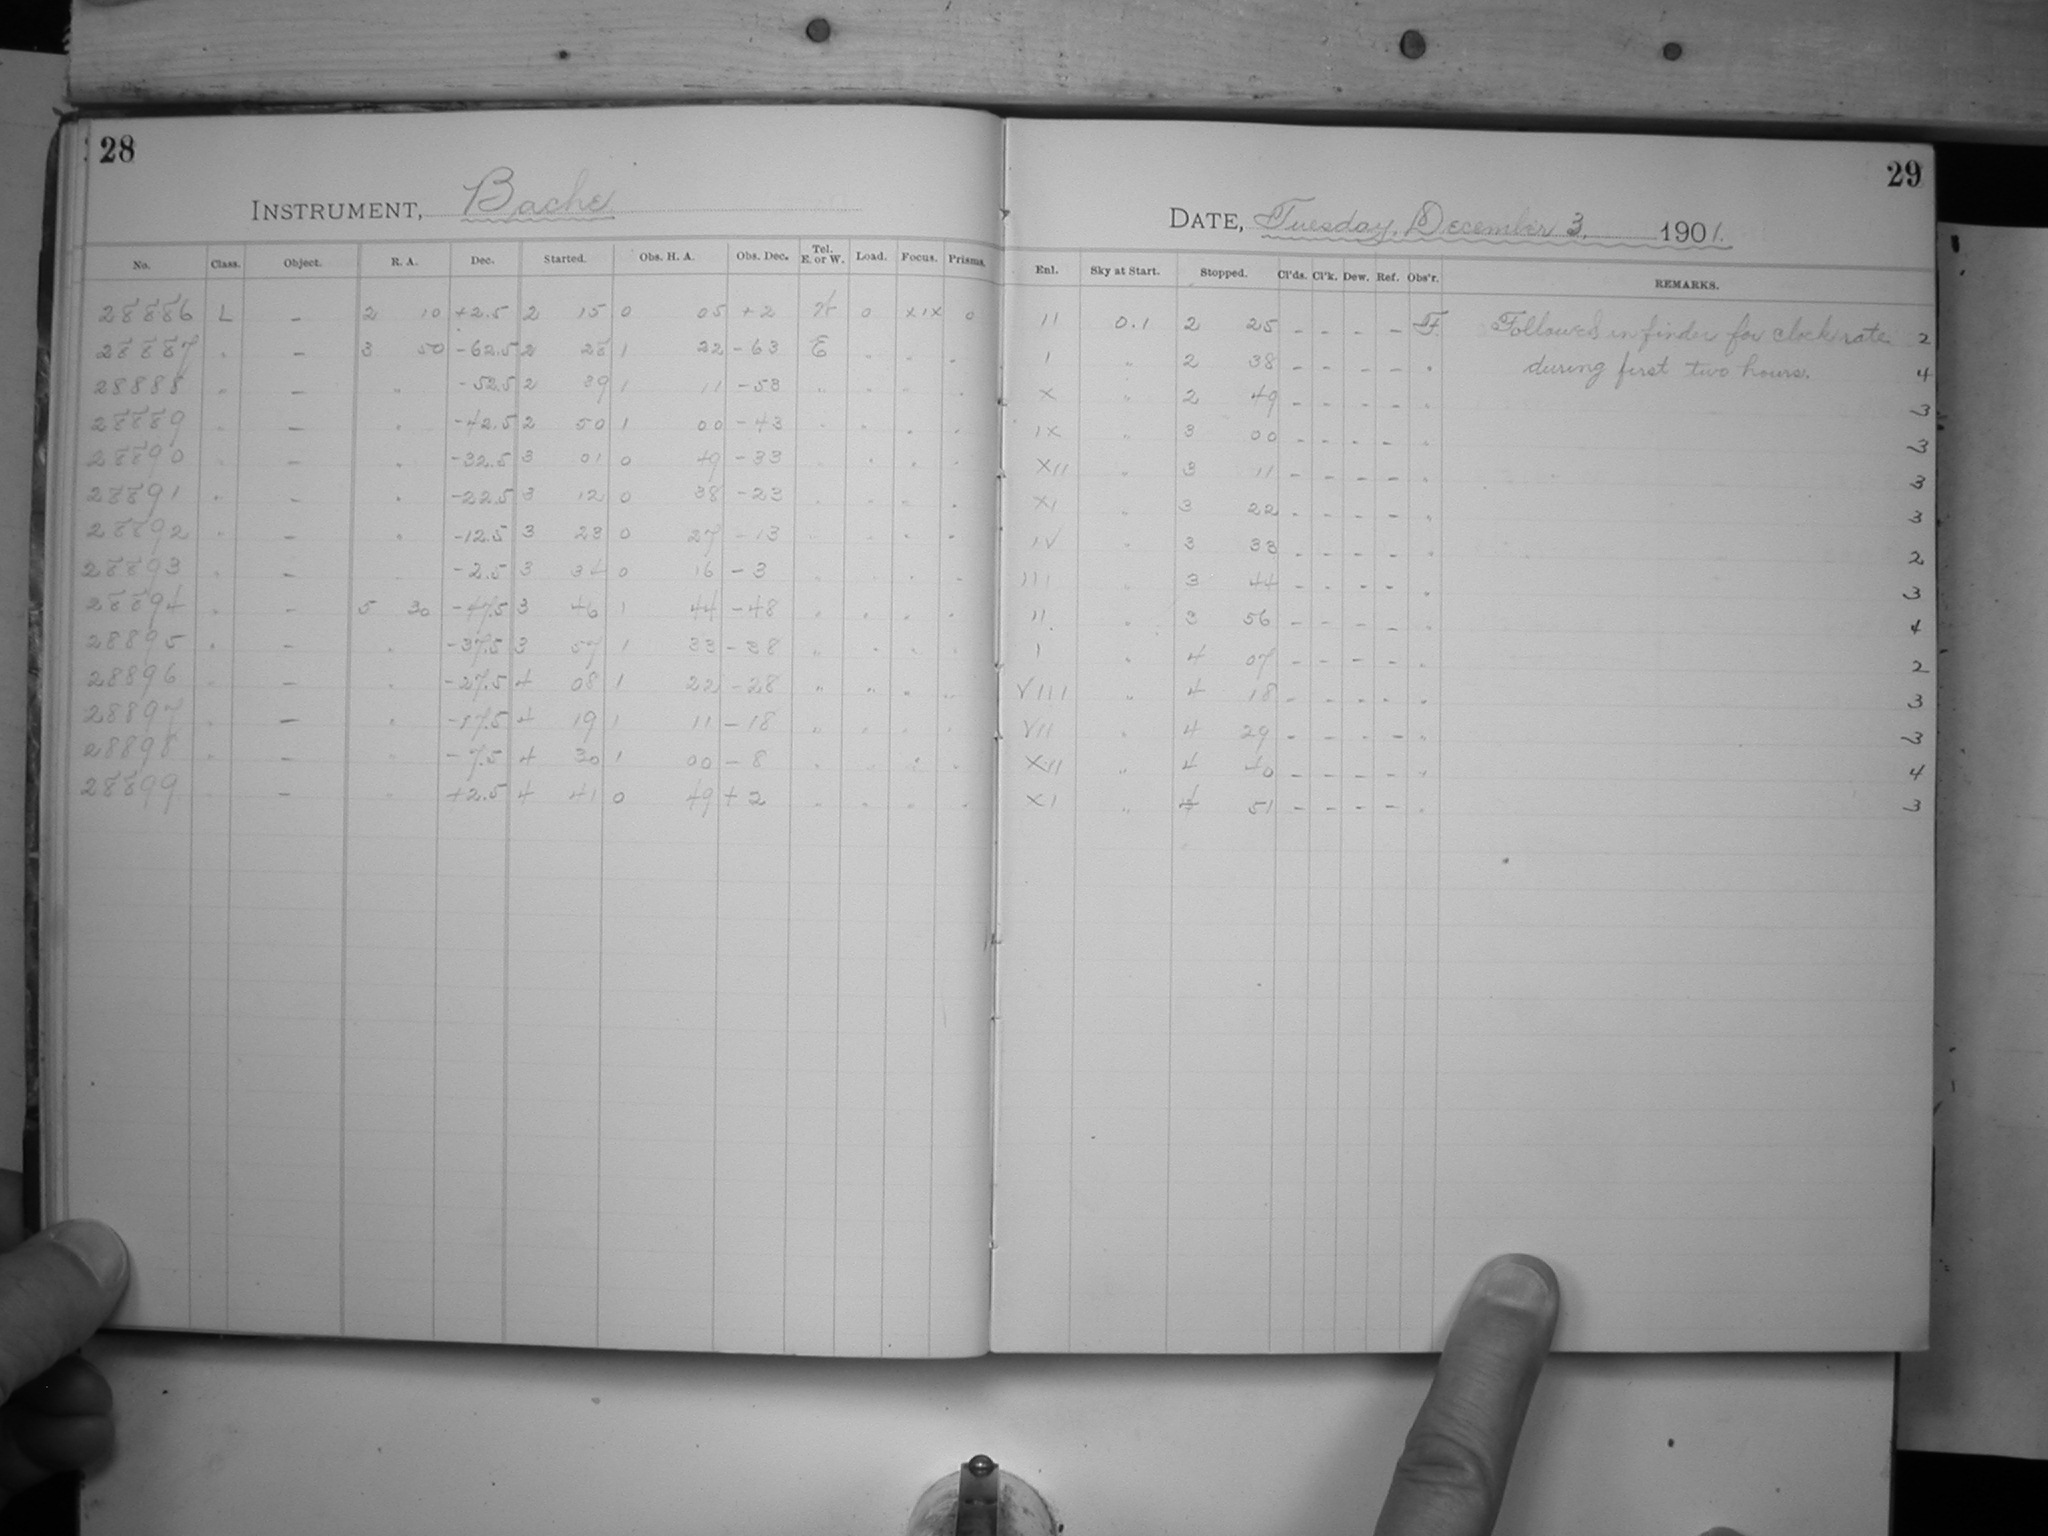 28
INSTRUMENT, Bache
No. Class. Object. R. A. Dec. Started. Obs. H. A. Obs. Dec. Tel. E. or W. Load. Focus. Prisms.
28886 L – 2 10 +2.5 2 15 0 05 +2 W 0 XIX 0
28887 " – 3 50 -62.5 2 28 1 22 -63 E " " "
28888 " – " -52.5 2 39 1 11 -53 " " " "
28889 " – " -42.5 2 50 1 00 -43 " " " "
28890 " – " -32.5 3 01 0 49 -33 " " " "
28891 " – " -22.5 3 12 0 38 -23 " " " "
28892 " – " -12.5 3 23 0 27 -13 " " " "
28893 " – " -2.5 3 34 0 16 -3 " " " "
28894 " – 5 30 -47.5 3 46 1 44 -48 " " " "
28895 " – " -37.5 3 57 1 33 -38 " " " "
28896 " – " -27.5 4 08 1 22 -28 " " " "
28897 " – " -17.5 4 19 1 11 -18 " " " "
28898 " – " -7.5 4 30 1 00 -8 " " " "
28899 " – " +2.5 4 41 0 49 +2 " " " "
29
DATE, Tuesday, December 3, 1901.
Enl. Sky at Start. Stopped. Cl'ds. Cl'k. Dew. Ref. Obs'r. REMARKS.
II 0.1 2 25 – – – – F. Followed in finder for clock rate 2
I " 2 38 – – – – " during first two hours. 4
X " 2 49 – – – – " 3
IX " 3 00 – – – – " 3
XII " 3 11 – – – – " 3
XI " 3 22 – – – – " 3
IV " 3 33 – – – – " 2
III " 3 44 – – – – " 3
II " 3 56 – – – – " 4
I " 4 07 – – – – " 2
VIII " 4 18 – – – – " 3
VII " 4 29 – – – – " 3
XII " 4 40 – – – – " 4
XI " 4 51 – – – – " 3